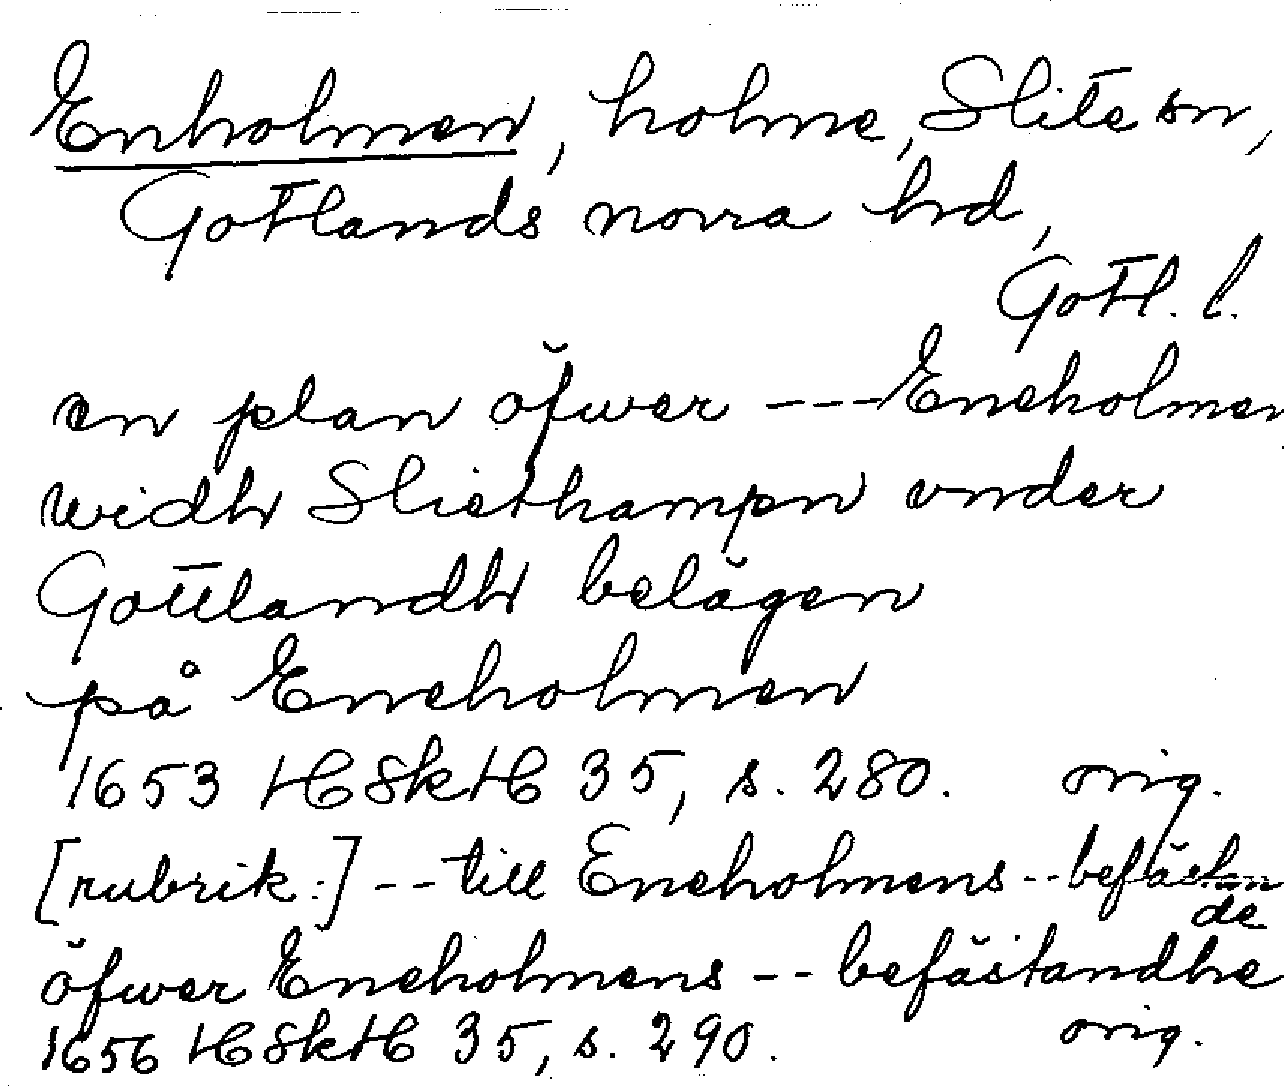 Enholmen, holme, Slite sn,
Gotlands norra hd,
Gotl. l.
en plan öfwer --- Eneholmen
widh Sliethampn vnder
Gottlandh belägen
på Eneholmen
1653 HSkH 35, s. 280. orig.
[rubrik:] -- till Eneholmens -- befästan
de
öfwer Eneholmens -- befästandhe
1656 HSkH 35, s. 290. orig.